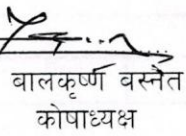 बालकृष्ण वस्नेत
कोषाध्यक्ष